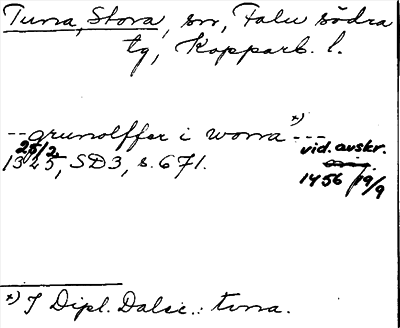 Tuna, Stora, sn, Falu södra
tg, Kopparb. l.
--grunolffer i wonna *) ---
25/2 1325, SD3, s. 671.
vid. avskr.
1456 19/9
*) I Dipl. Dalec.: tunna.